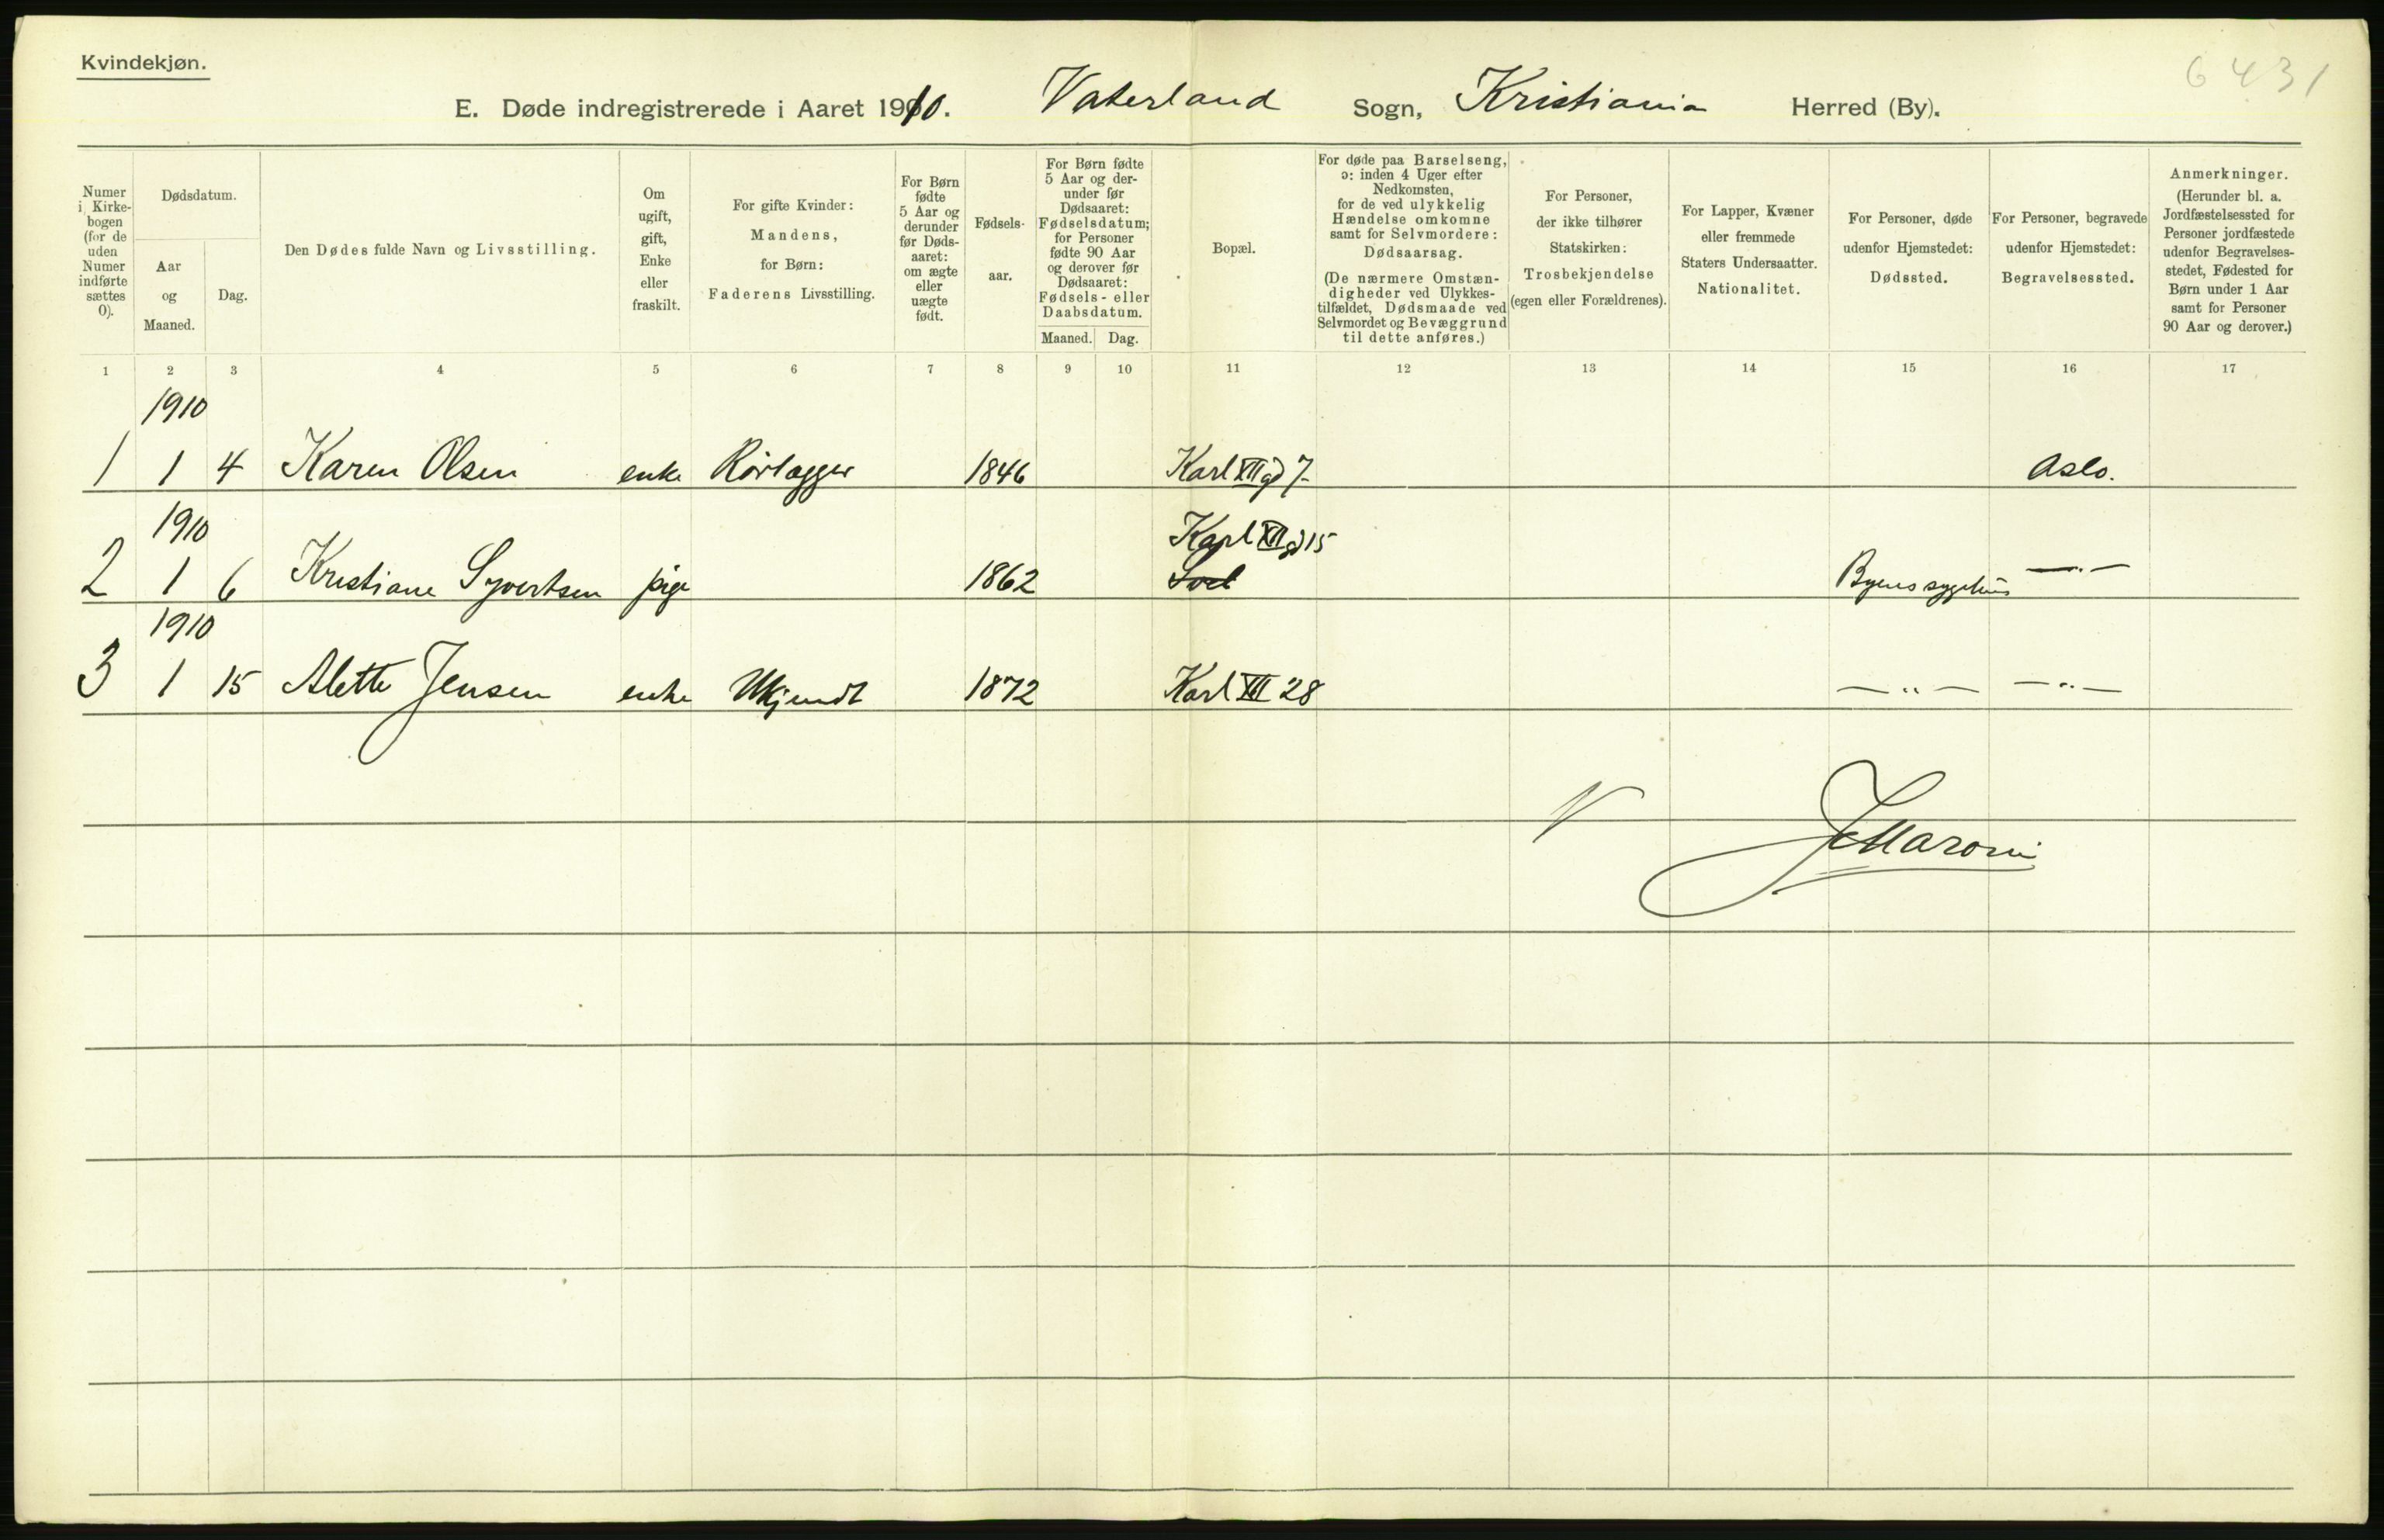 Kvindekjøn.
6431
E. Døde indregistrerede i Aaret 1910. Vaterland Sogn, Kristiania Herred (By).
Numer i Kirkebogen (for de uden Numer indførte sættes 0).
Dødsdatum.
Aar og Maaned.
Dag.
Den Dødes fulde Navn og Livsstilling.
Om ugift, gift, Enke eller fraskilt.
For gifte Kvinder: Mandens, for Børn: Faderens Livsstilling.
For Børn fødte 5 Aar og derunder før Dødsaaret: om ægte eller uægte født.
Fødselsaar.
For Børn fødte 5 Aar og derunder før Dødsaaret: Fødselsdatum; for Personer fødte 90 Aar og derover før Dødsaaret: Fødsels- eller Daabsdatum.
Maaned. Dag.
Bopæl.
For døde paa Barselseng, ɔ: inden 4 Uger efter Nedkomsten, for de ved ulykkelig Hændelse omkomne samt for Selvmordere: Dødsaarsag. (De nærmere Omstændigheder ved Ulykkestilfældet, Dødsmaade ved Selvmordet og Bevæggrund til dette anføres.)
For Personer, der ikke tilhører Statskirken: Trosbekjendelse (egen eller Forældrenes).
For Lapper, Kvæner eller fremmede Staters Undersaatter. Nationalitet.
For Personer, døde udenfor Hjemstedet: Dødssted.
For Personer, begravede udenfor Hjemstedet: Begravelsessted.
Anmerkninger. (Herunder bl. a. Jordfæstelsessted for Personer jordfæstede udenfor Begravelsesstedet, Fødested for Børn under 1 Aar samt for Personer 90 Aar og derover.)
1 2 3 4 5 6 7 8 9 10 11 12 13 14 15 16 17
1910
1 1 4 Karen Olsen enke Rørlægger 1846 Karl XII gd 7 Oslo.
1910 Karl XII gd 15
2 1 6 Kristiane Syvertsen pige 1862 Byens sygehus —"—
1910
3 1 15 Alette Jensen enke Ukjendt 1872 Karl XII 28 —"— —"—